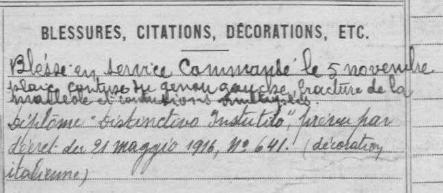 BLESSURES, CITATIONS, DÉCORATIONS, ETC.
Blessé en service Commandé le 5 novembre
plaie contuse du genou gauche, fracture de la
malléole et contusions multiples.
Diplôme "Distinctivo Istituito", prévu par
décret du 21 maggio 1916, No 641. (décoration
italienne)